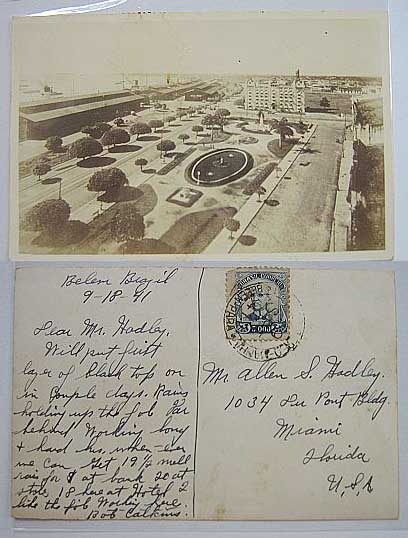 Belem Bragil
9-18-41
Dear Mr. Hadley,
Will put first
layer of Black top on
in couple days. Rains
holding up the job far
behind Working long
& hard hrs. when-ever
we can Get 19 1/2 mill
rais for $ at bank 20 at
store, 18 here at Hotel I
like the job Working here.
Bob Calkins.
Mr. Allen S. Hadley.
1034 Du Pont Bldg.
Miami
Florida
U,S,A